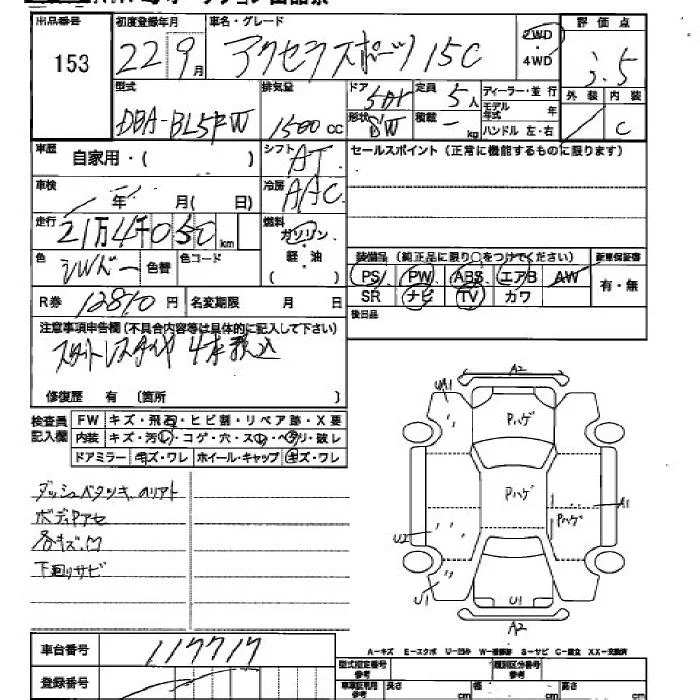 出品番号 初度登録年月 車名・グレード 評価点
153 22 9月 アクセラスポーツ 15C 2WD・4WD 3.5
型式 排気量 ドア 5DR 定員 5人 ディーラー・並行 外装 内装
DBA-BL5FW 1500cc 形状 SW 積載 - kg モデル年式 年 C
ハンドル 左・右
車歴 自家用・( ) シフト AT セールスポイント(正常に機能するものに限ります)
車検 年 月( 日) 冷房 AAC
走行 21万4千050km 燃料 ガソリン・軽油 ( )
色 シルバー 色替 色コード 装備品(純正品に限り○をつけてください) 新車保証書
PS PW ABS エアB AW 有・無
R券 12810円 名変期限 月 日 SR ナビ TV カワ
後日品
注意事項申告欄(不具合内容等は具体的に記入して下さい)
スタットレスタイヤ 4本積込
修復歴 有 (箇所 )
検査員記入欄 FW キズ・飛石・ヒビ割・リペア跡・X要
内装 キズ・汚レ・コゲ・穴・スレ・ヘタリ・破レ
ドアミラー キズ・ワレ ホイール・キャップ キズ・ワレ
ダッシュベタツキ、のリアト
ボディPアセ
各キズ、凹
下廻りサビ
A2
UA1
Pハゲ
Pハゲ
A1
Pハゲ
U2
U1
U1
A2
A-キズ E-エクボ U-凹み W-補修跡 S-サビ C-腐食 XX-交換済
車台番号 117717
登録番号
型式指定番号 参考 類別区分番号 参考
車車証明用 参考 長さ cm 幅 cm 高さ cm